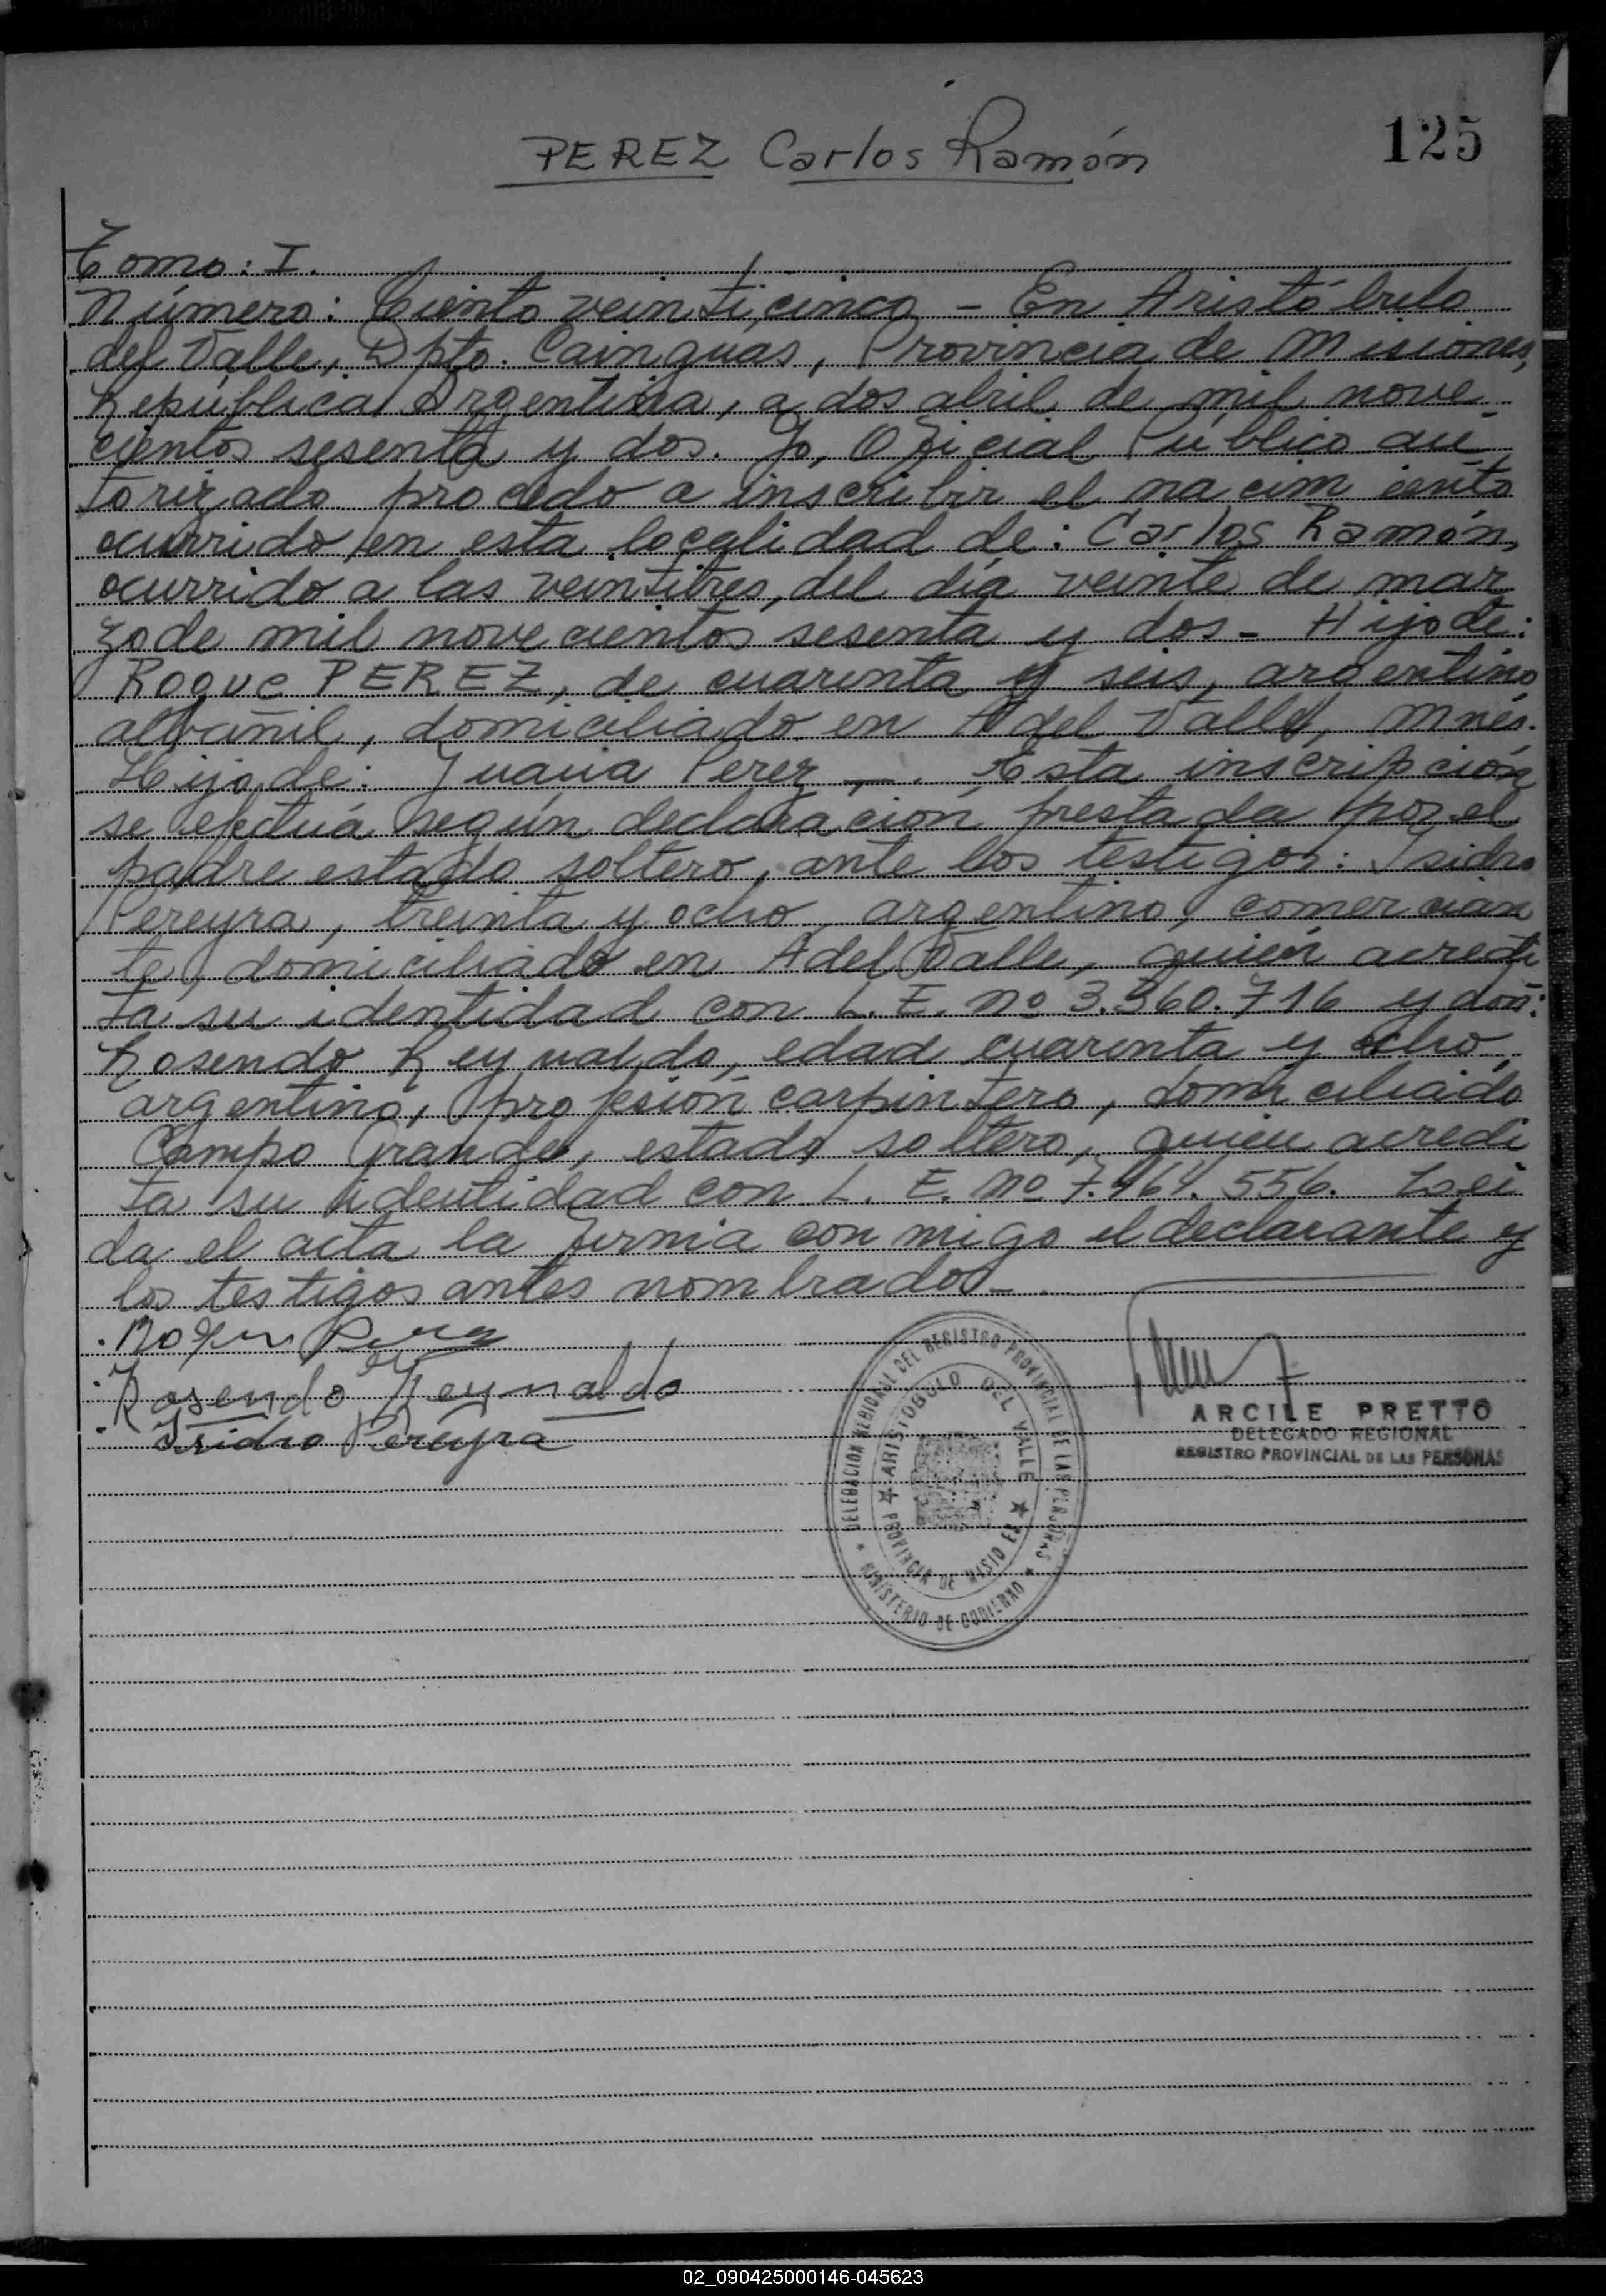 125
PEREZ Carlos Ramón
Tomo: I.
Número: Ciento veinticinco - En Aristóbulo
del Valle, Dpto. Cainguas, Provincia de Misiones,
República Argentina, a dos abril de mil nove-
cientos sesenta y dos. Yo, Oficial Público au
torizado procedo a inscribir el nacimiento
ocurrido en esta localidad de: Carlos Ramón,
ocurrido a las veintitres, del día veinte de mar
zo de mil novecientos sesenta y dos - Hijo de:
Roque PEREZ, de cuarenta y seis, argentino
albañil, domiciliado en A del Valle, Mnes.
Hijo de: Juana Perez —. Esta inscripción
se efectúa según declaración prestada por el
padre estado soltero, ante los testigos: Isidro
Pereyra, treinta y ocho, argentino, comercian
te, domiciliado en A del Valle, quién acredi
ta su identidad con L. E. nº 3.360.716 y don:
Rosendo Reynaldo, edad cuarenta y ocho,
argentino, profesión carpintero, domiciliado
Campo Grande, estado soltero, quien acredi
ta su identidad con L. E. nº 7.464.556. Leí
da el acta la firma con migo el declarante y
los testigos antes nombrados-
Roque Perez
Rosendo Reynaldo
Isidro Pereyra
DELEGACION REGIONAL DEL REGISTRO PROVINCIAL DE LAS PERSONAS
MINISTERIO DE GOBIERNO
ARISTOBULO DEL VALLE
PROVINCIA DE MISIONES
ARCILE PRETTO
DELEGADO REGIONAL
REGISTRO PROVINCIAL DE LAS PERSONAS
02_090425000146-045623